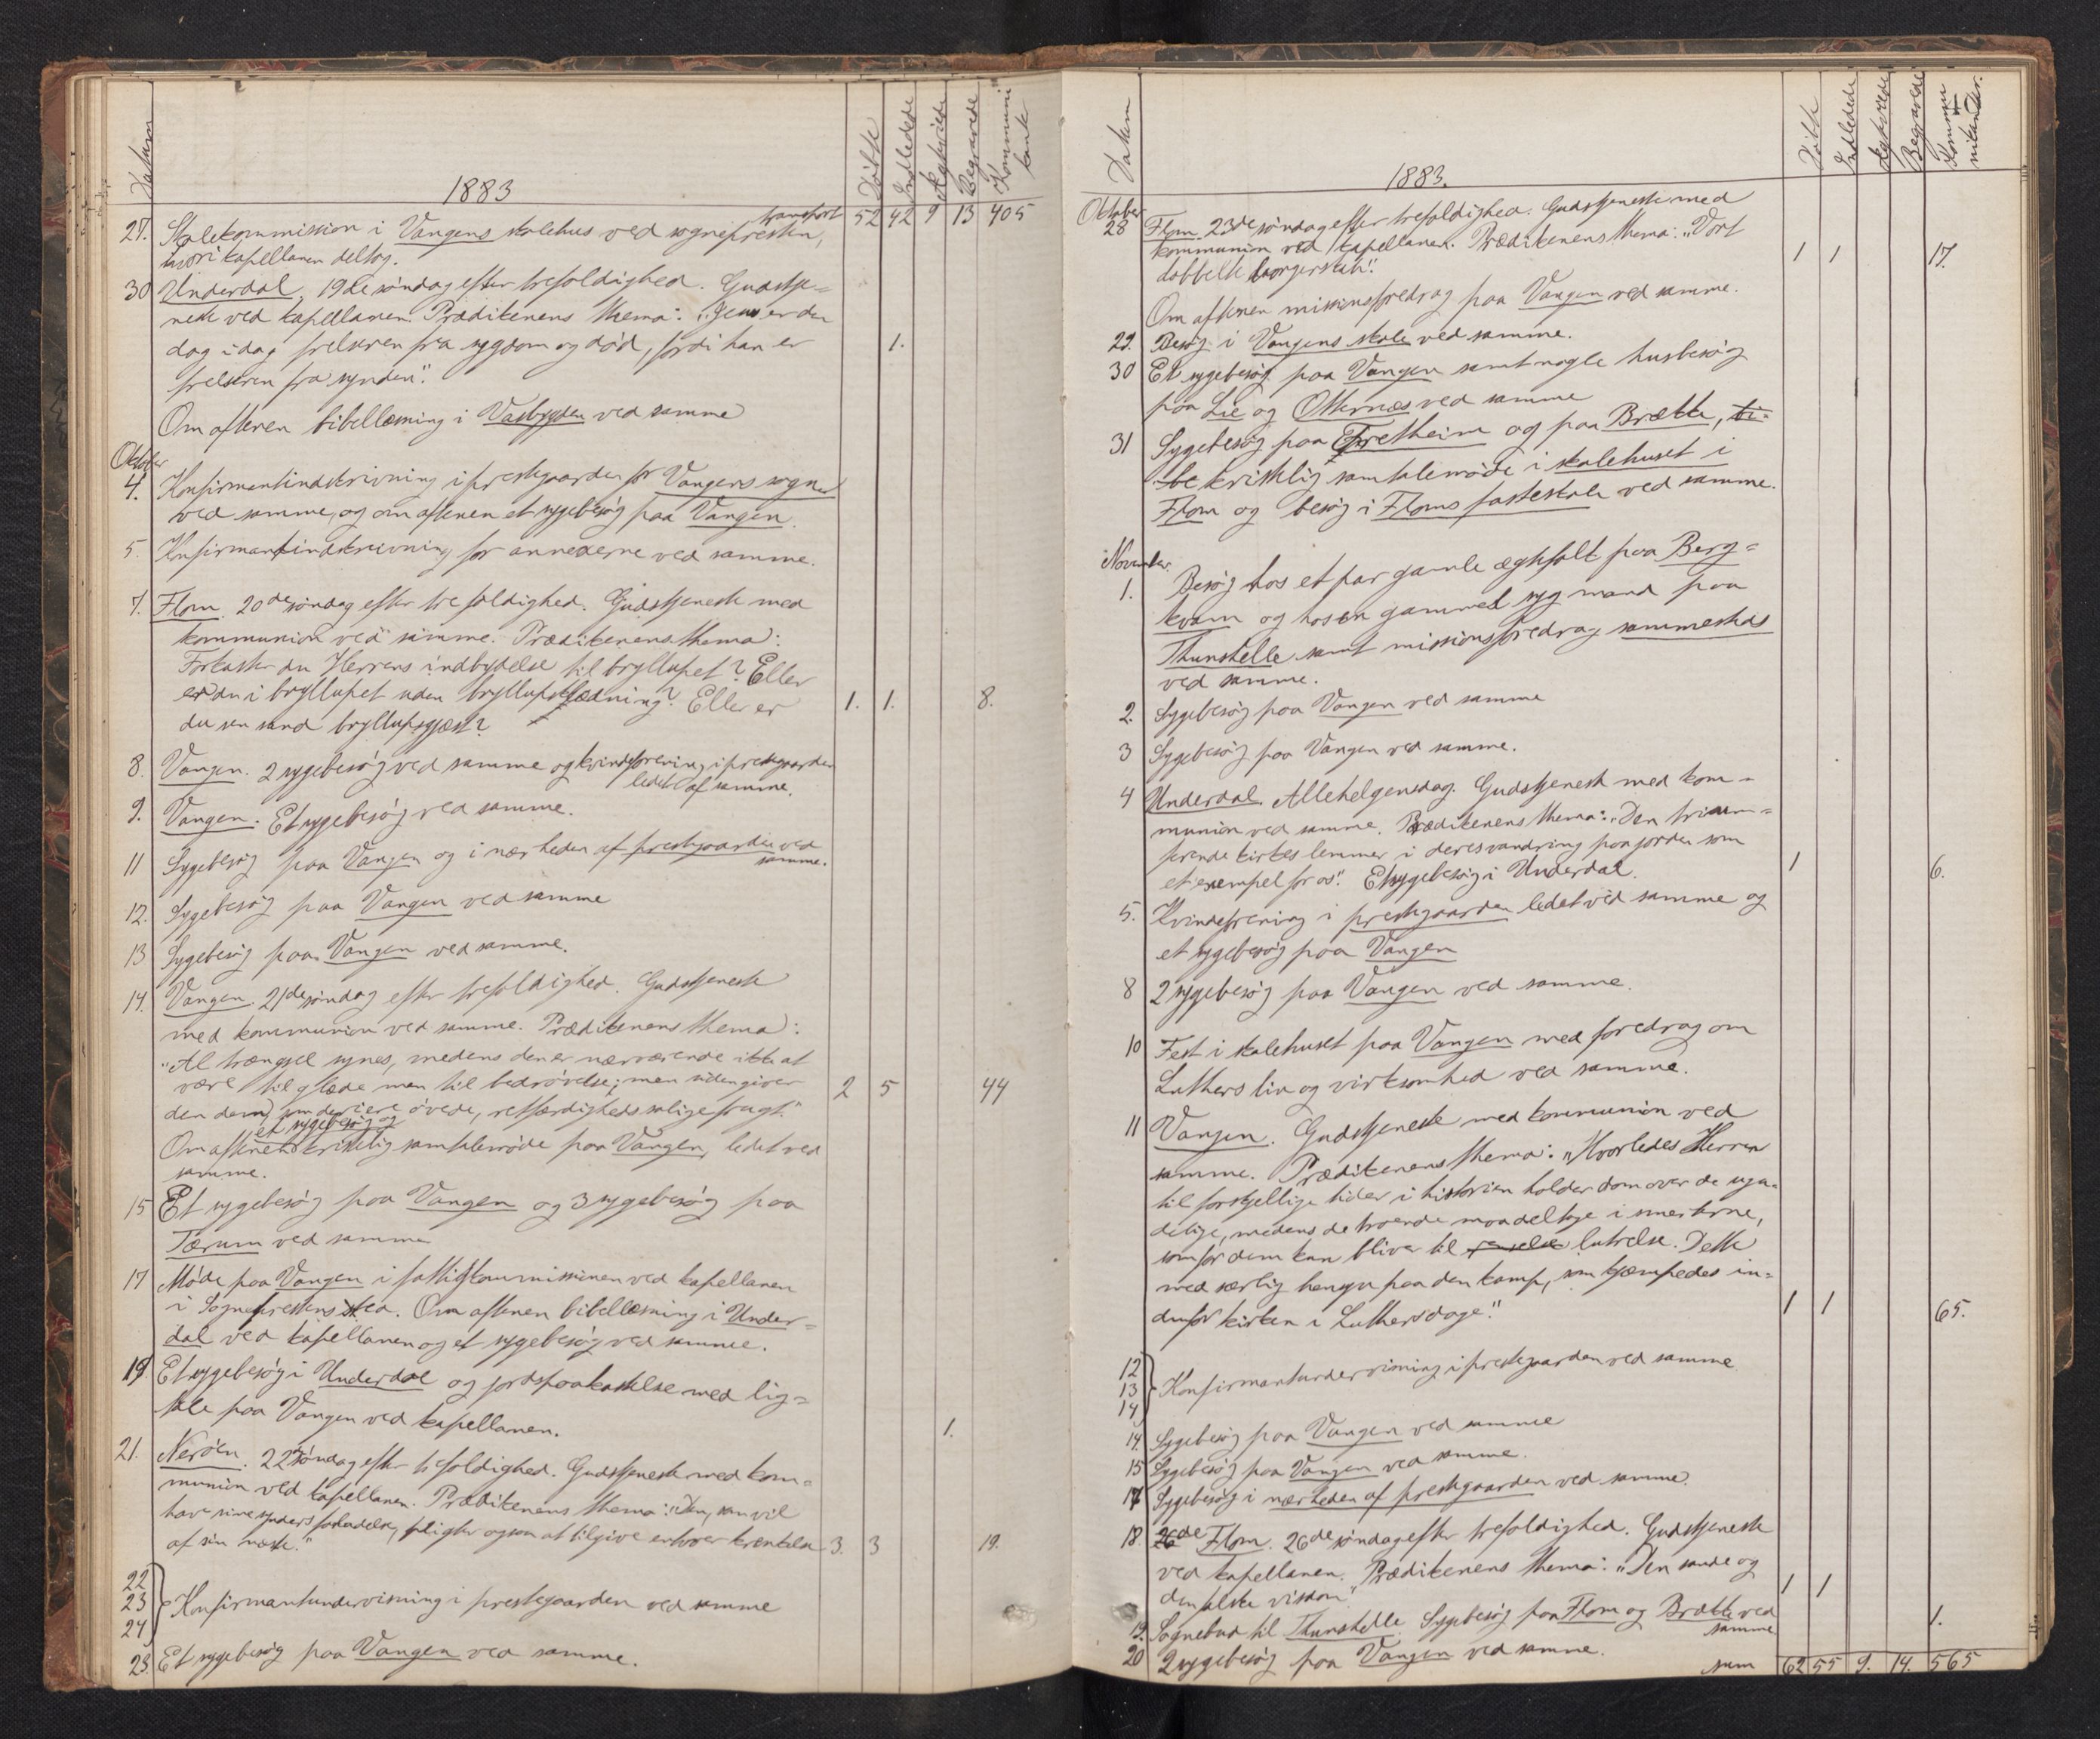 Datum
1883
Døbte
Indledede
Ægteviede
Begravede
Kommuni
kante
transport 52 42 9 13 405
27. Skolekommission i Vangens skolehus ved sognepresten,
hvori kapellanen deltog.
30 Underdal, 19de søndag efter trefoldighed. Gudstje=
neste ved kapellanen. Prædikenens thema: "Jesus er den
dag i dag frelseren fra sygdom og død, fordi han er
frelseren fra synden". 1.
Om aftenen bibellæsning i Vasbygden ved samme
Oktober
4. Konfirmantindskrivning i prestegaarden for Vangens sogn
ved samme, og om aftenen et sygebesøg paa Vangen.
5. Konfirmantindskrivning for annexerne ved samme.
7. Flom. 20de søndag efter trefoldighed. Gudstjeneste med
kommunion ved samme. Prædikenens thema:
Forkaster du Herrens indbydelse til bryllupet? Eller
er du i bryllupet uden bryllupsklædning? Eller er 1. 1. 8.
du en sand bryllupsgjæst?
8. Vangen. 2 sygebesøg ved samme og kvindeforening i prestegaarden
ledet af samme.
9. Vangen. Et sygebesøg ved samme.
11 Sygebesøg paa Vangen og i nærheden af prestegaarden ved
samme.
12. Sygebesøg paa Vangen ved samme
13 Sygebesøg paa Vangen ved samme.
14. Vangen. 21de søndag efter trefoldighed. Gudstjeneste
med kommunion ved samme. Prædikenens thema:
"Al trængsel synes, medens den er nærværende ikke at
være til glæde men til bedrøvelse; men siden giver 2 5 44
den dem, som derved ere øvede, retfærdigheds salige frugt."
et sygebesøg og
Om aftenen kristelig samtalemøde paa Vangen, ledet ved
samme.
15 Et sygebesøg paa Vangen og 3 sygebesøg paa
Tærum ved samme
17 Møde paa Vangen i fattigkommissionen ved kapellanen
i Sogneprestens sted. Om aftenen bibellæsning i Under=
dal ved kapellanen og et sygebesøg ved samme.
19. Et sygebesøg i Underdal og jordspaakastelse med lig=
tale paa Vangen ved kapellanen. 1.
21. Nerøen. 22de søndag efter trefoldighed. Gudstjeneste med kom=
munion ved kapellanen. Prædikenens thema: "Den, som vil
have sine synders forladelse, pligter ogsaa at tilgive enhver krænkelse 3. 3 19.
af sin næste."
22
23 Konfirmantundervisning i prestegaarden ved samme
24
23. Et sygebesøg paa Vangen ved samme.
Datum
1883.
Døbte
Indledede
Ægteviede
Begravede
Kommu
nikanter.
Oktober
28 Flom. 23de søndag efter trefoldighed. Gudstjeneste med
kommunion ved kapellanen. Prædikenens thema: "Vort 1 1 17.
dobbelte borgerskab".
Om aftenen missionsforedrag paa Vangen ved samme.
29. Besøg i Vangens skole ved samme.
30 Et sygebesøg paa Vangen samt nogle husbesøg
paa Lie og Otternæs ved samme
31 Sygebesøg paa Fretheim og paa Brække, bi=
be kristelig samtalemøde i skolehuset i
Flom og besøg i Floms fasteskole ved samme.
November.
1. Besøg hos et par gamle ægtefolk paa Berg=
kvam og hos en gammel syg mand paa
Thunshelle samt missionsforedrag sammesteds
ved samme.
2. Sygebesøg paa Vangen ved samme
3 Sygebesøg paa Vangen ved samme.
4 Underdal. Allehelgensdag. Gudstjeneste med kom=
munion ved samme. Prædikenens thema: "Den trium=
ferende kirkes lemmer i deres vandring paa jorden som
et exempel for os". Et sygebesøg i Underdal. 1 6.
5. Kvindeforening i prestegaarden ledet ved samme og
et sygebesøg paa Vangen
8 2 sygebesøg paa Vangen ved samme.
10 Fest i skolehuset paa Vangen med foredrag om
Luthers liv og virksomhed ved samme.
11 Vangen. Gudstjeneste med kommunion ved
samme. Prædikenens thema: "Hvorledes Herren
til forskjellige tider i historien holder dom over de ugu=
delige, medens de troende maa deltage i smerterne,
som for dem kun bliver til lutrelse. Dette
med særlig hensyn paa den kamp, som kjæmpedes in=
denfor kirken i Luthers dage". 1 1 65.
12
13 Konfirmantundervisning i prestegaarden ved samme
14
14. Sygebesøg paa Vangen ved samme
15 Sygebesøg paa Vangen ved samme.
17 Sygebesøg i nærheden af prestegaarden ved samme.
18. 26de Flom. 26de søndag efter trefoldighed. Gudstjeneste
ved kapellanen. Prædikenens thema: "Den sande og
den falske visdom". 1 1
19. Sognebud til Thunshelle. Sygebesøg paa Flom og Brække ved 1.
samme
20 2 sygebesøg paa Vangen ved samme.
sum 62 55 9. 14. 565